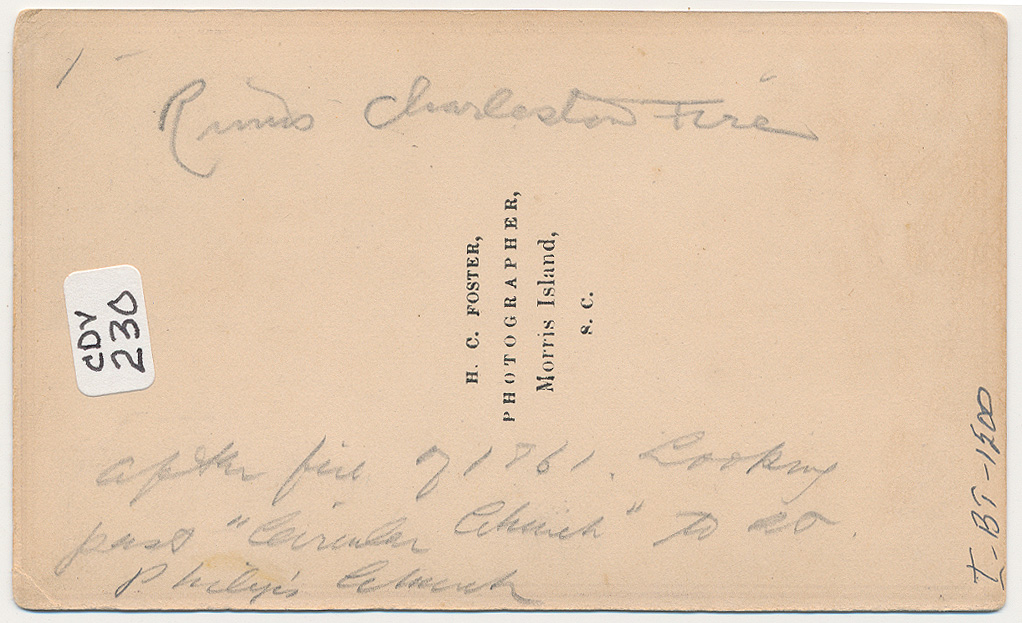 1 -
Ruins Charleston Fire
H. C. FOSTER,
PHOTOGRAPHER,
Morris Island,
S. C.
CDV
230
after fire of 1861. Looking
past "Circular Church" to St.
Philip's Church
I-BT-1500